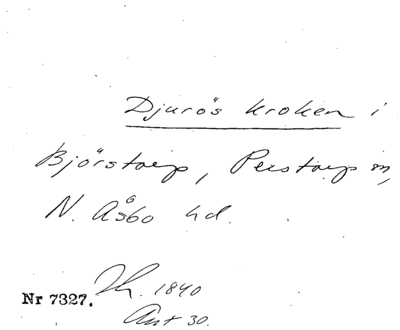 Djurös kroken i
Björstorp, Perstorp sn,
N. Åsbo hd.
Nr 7327. Th. 1840
Ant 30.